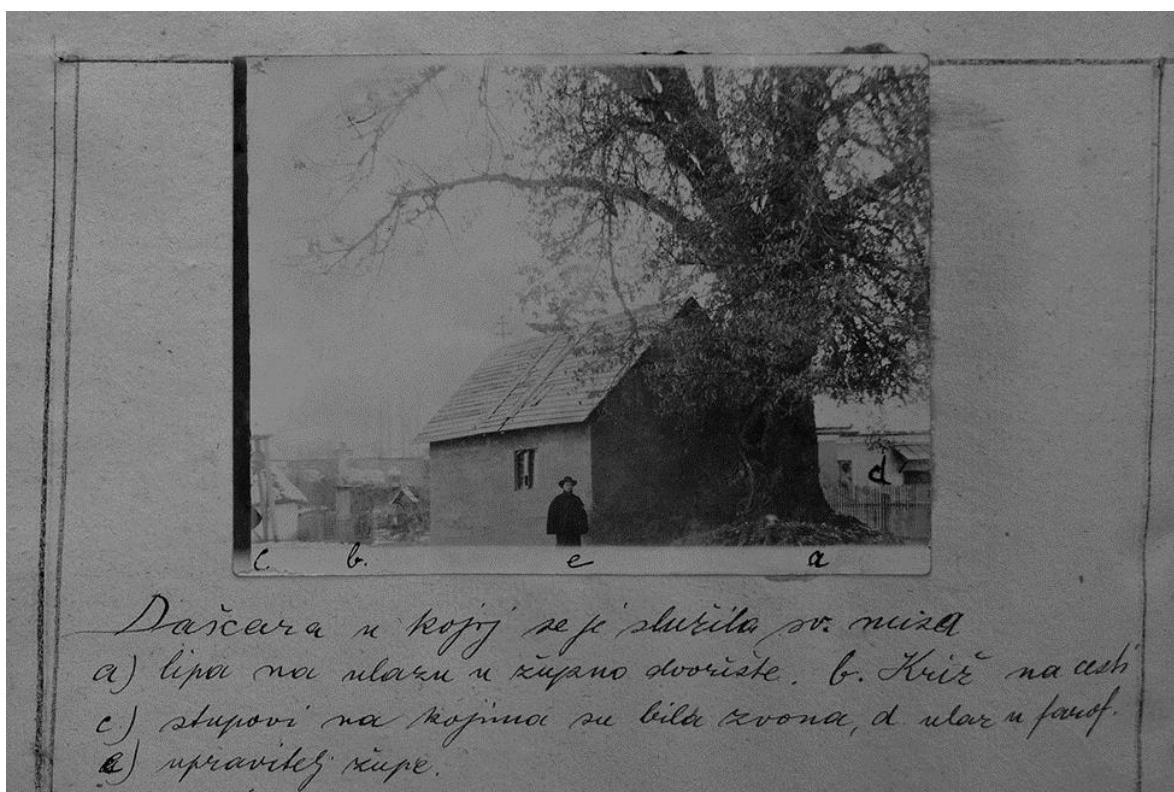 d
c b. e a
Daščara u kojoj se je služila sv. misa
a) lipa na ulazu u župno dvorište. b. Križ na cesti
c) stupovi na kojima su bila zvona, d ulaz u farof.
e) upravitelj župe.